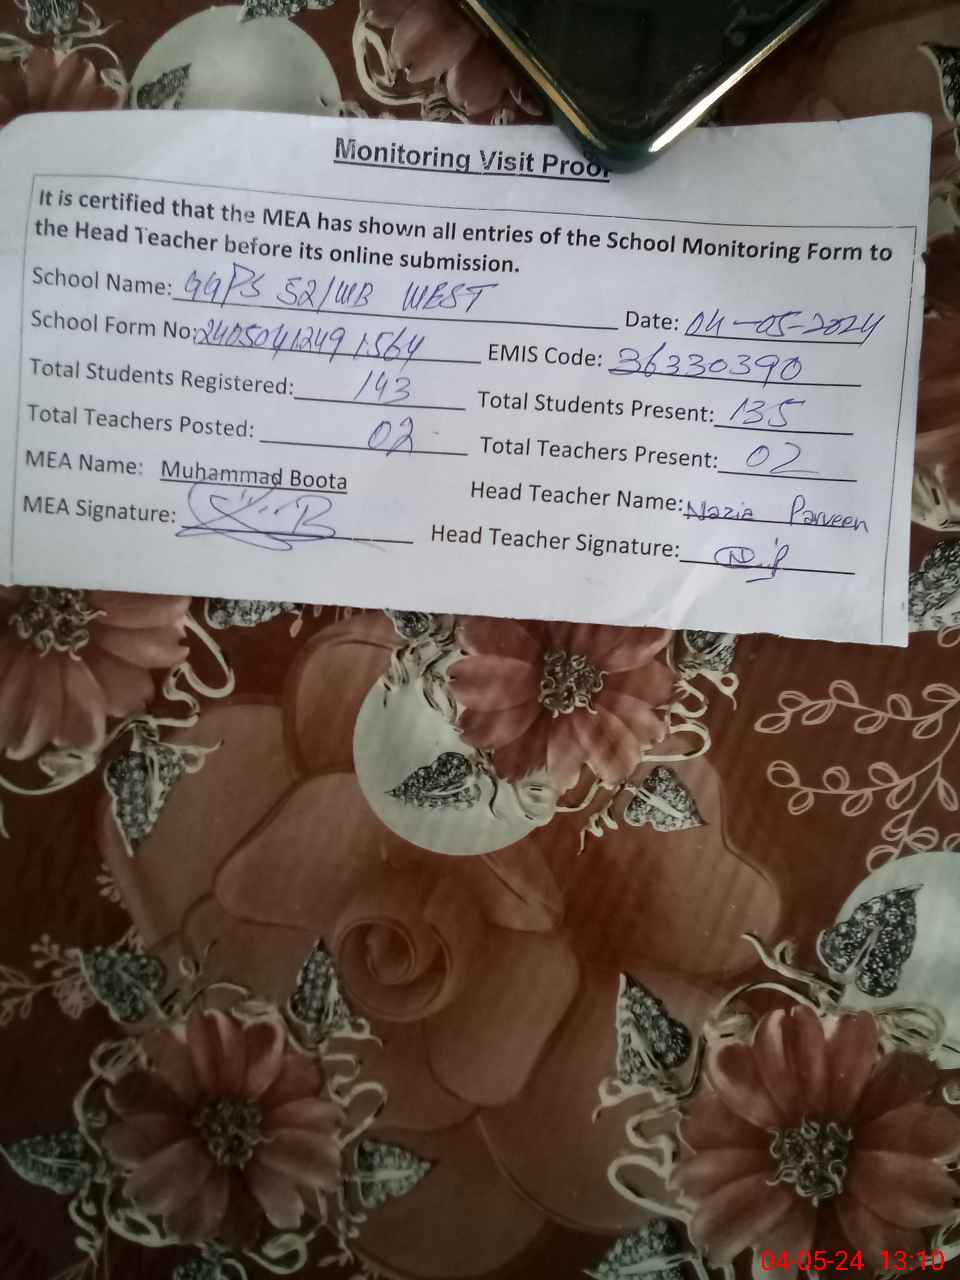 Monitoring Visit Proof
It is certified that the MEA has shown all entries of the School Monitoring Form to
the Head Teacher before its online submission.
School Name: GGPS 52/WB WEST Date: 04-05-2024
School Form No: 24050412491564 EMIS Code: 36330390
Total Students Registered: 143 Total Students Present: 135
Total Teachers Posted: 02 Total Teachers Present: 02
MEA Name: Muhammad Boota Head Teacher Name: Nazia Parveen
MEA Signature: Head Teacher Signature:
04-05-24 13:10